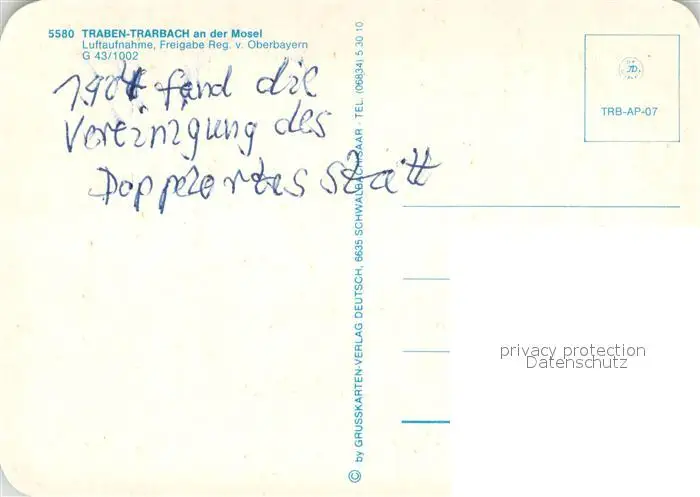 5580 TRABEN-TRARBACH an der Mosel
Luftaufnahme, Freigabe Reg. v. Oberbayern
G 43/1002
1904 fand die
Vereinigung des
Doppelortes statt
© by GRUSSKARTEN-VERLAG DEUTSCH, 6635 SCHWALBACH/SAAR - TEL. (06834) 5 30 10
TRB-AP-07
privacy protection
Datenschutz